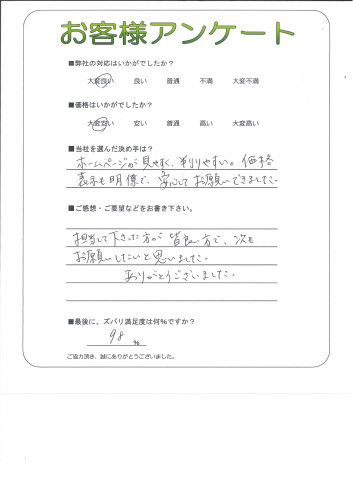 お客様アンケート
■弊社の対応はいかがでしたか？
大変良い 良い 普通 不満 大変不満
■価格はいかがでしたか？
大変安い 安い 普通 高い 大変高い
■当社を選んだ決め手は？
ホームページが見やすく、判りやすい。価格
表示も明僚で、安心してお願いできました。
■ご感想・ご要望などをお書き下さい。
担当して下さった方が皆良い方で、次も
お願いしたいと思いました。
ありがとうございました。
■最後に、ズバリ満足度は何%ですか？
98 %
ご協力頂き、誠にありがとうございました。